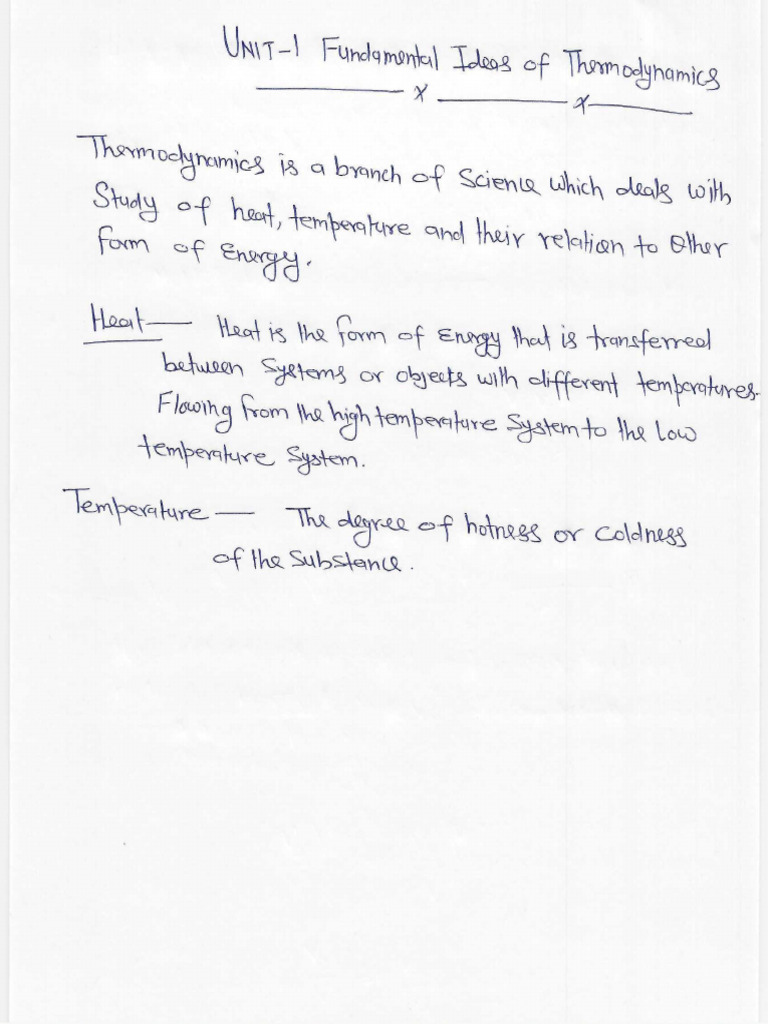 UNIT-1 Fundamental Ideas of Thermodynamics
x x
Thermodynamics is a branch of Science which deals with
Study of heat, temperature and their relation to Other
form of Energy.
Heat — Heat is the form of Energy that is transferred
between Systems or objects with different temperatures.
Flowing from the high temperature System to the low
temperature System.
Temperature — The degree of hotness or coldness
of the Substance.